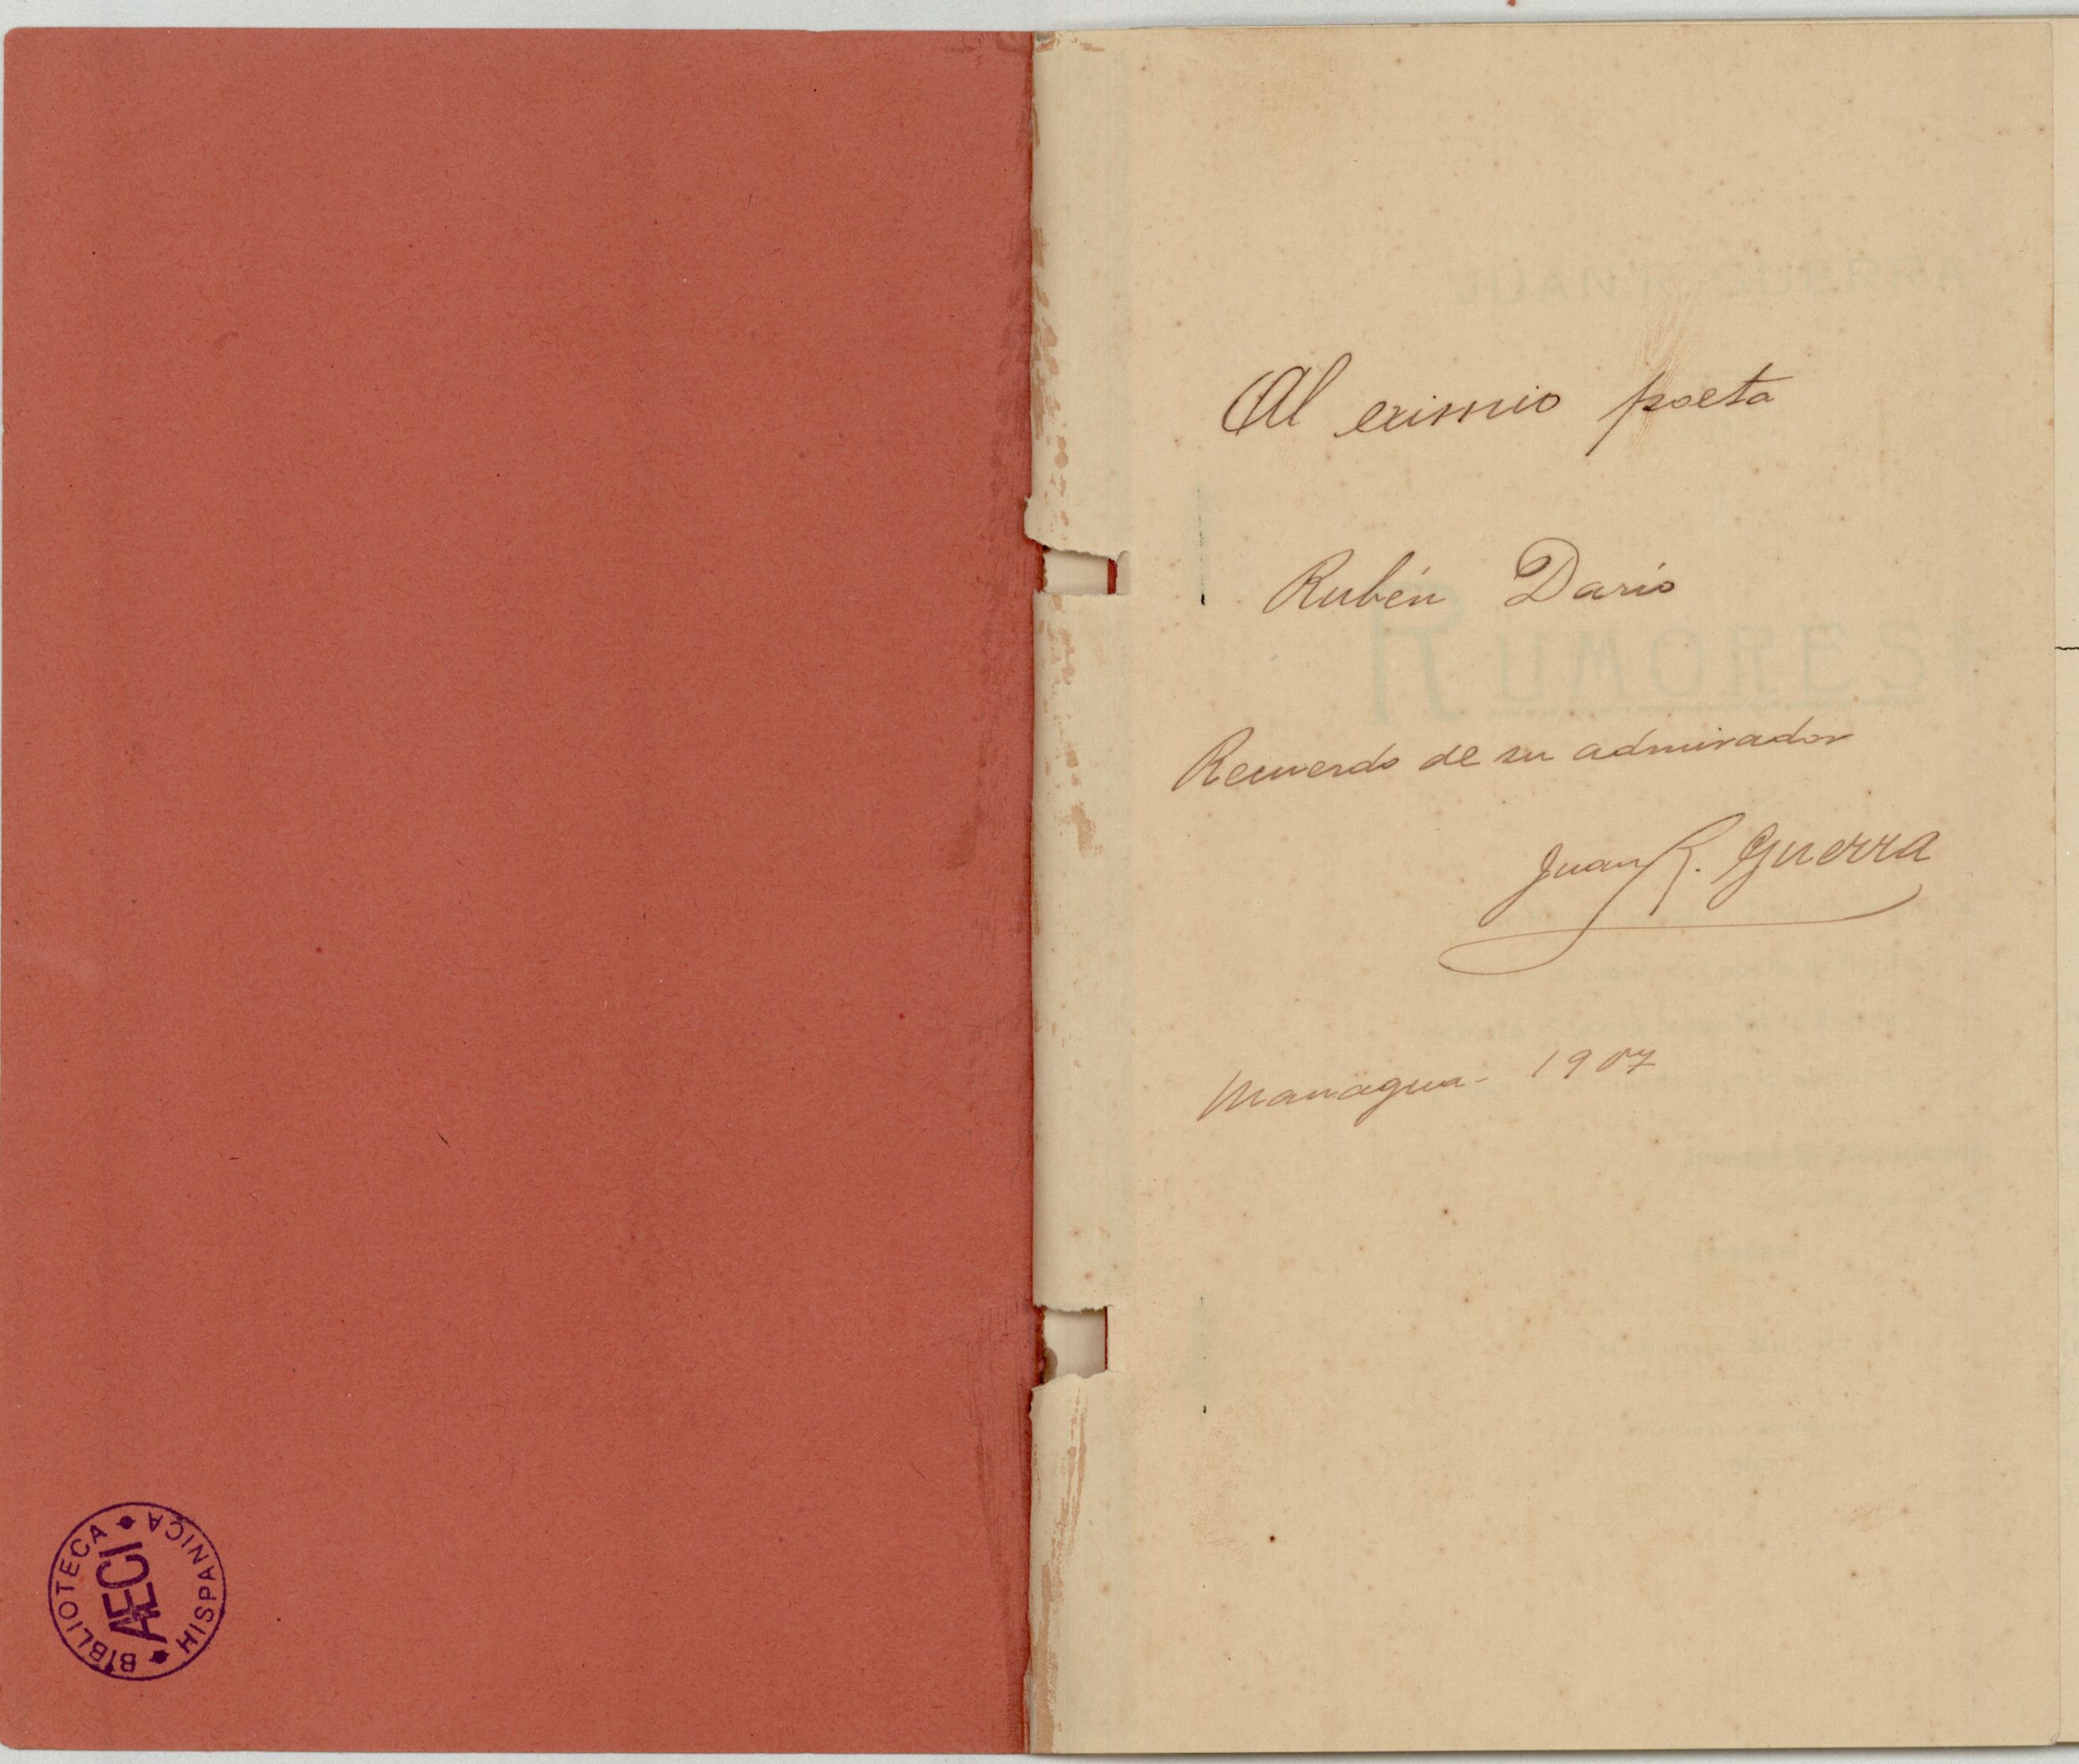 BIBLIOTECA
HISPANICA
AECI
JUAN R. GUERRA
Al eximio poeta
Rubén Darío
RUMORES
Recuerdo de su admirador
Juan R. Guerra
Managua - 1907